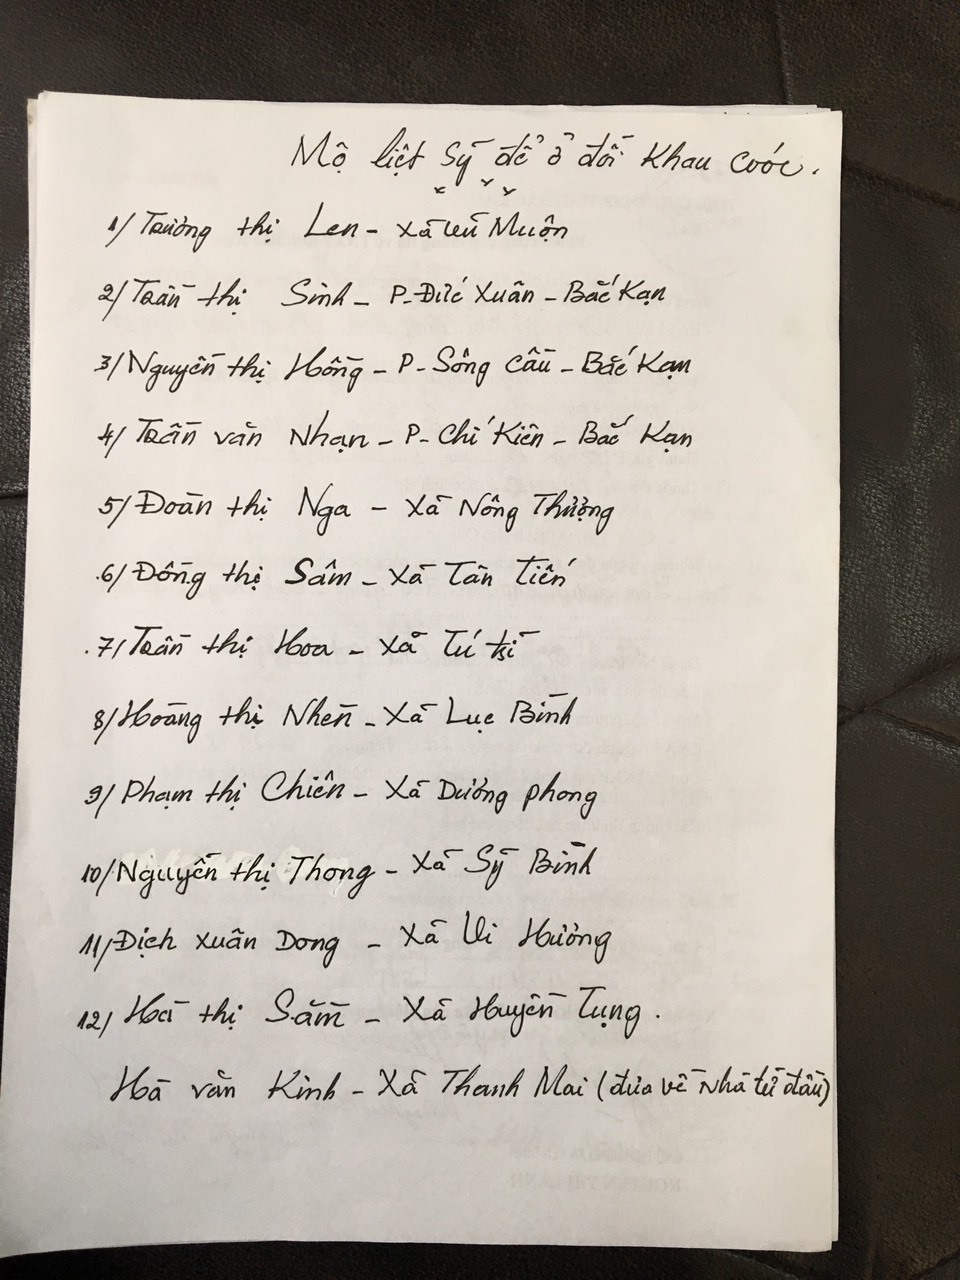 Mộ liệt sỹ để ở đồi Khau Cước.
1/ Trương thị Len - Xã Vũ Muộn
2/ Trần thị Sinh - P. Đức Xuân - Bắc Kạn
3/ Nguyễn thị Hồng - P. Sông Cầu - Bắc Kạn
4/ Trần văn Nhạn - P. Chí Kiên - Bắc Kạn
5/ Đoàn thị Nga - Xã Nông Thượng
6/ Đồng thị Sâm - Xã Tân Tiến
7/ Trần thị Hoa - Xã Tú Trĩ
8/ Hoàng thị Nhèn - Xã Lục Bình
9/ Phạm thị Chiên - Xã Dương phong
10/ Nguyễn thị Thong - Xã Sỹ Bình
11/ Địch Xuân Dong - Xã Vi Hương
12/ Hà thị Sắm - Xã Huyền Tụng.
Hà văn Kinh - Xã Thanh Mai (đưa về nhà từ đầu)